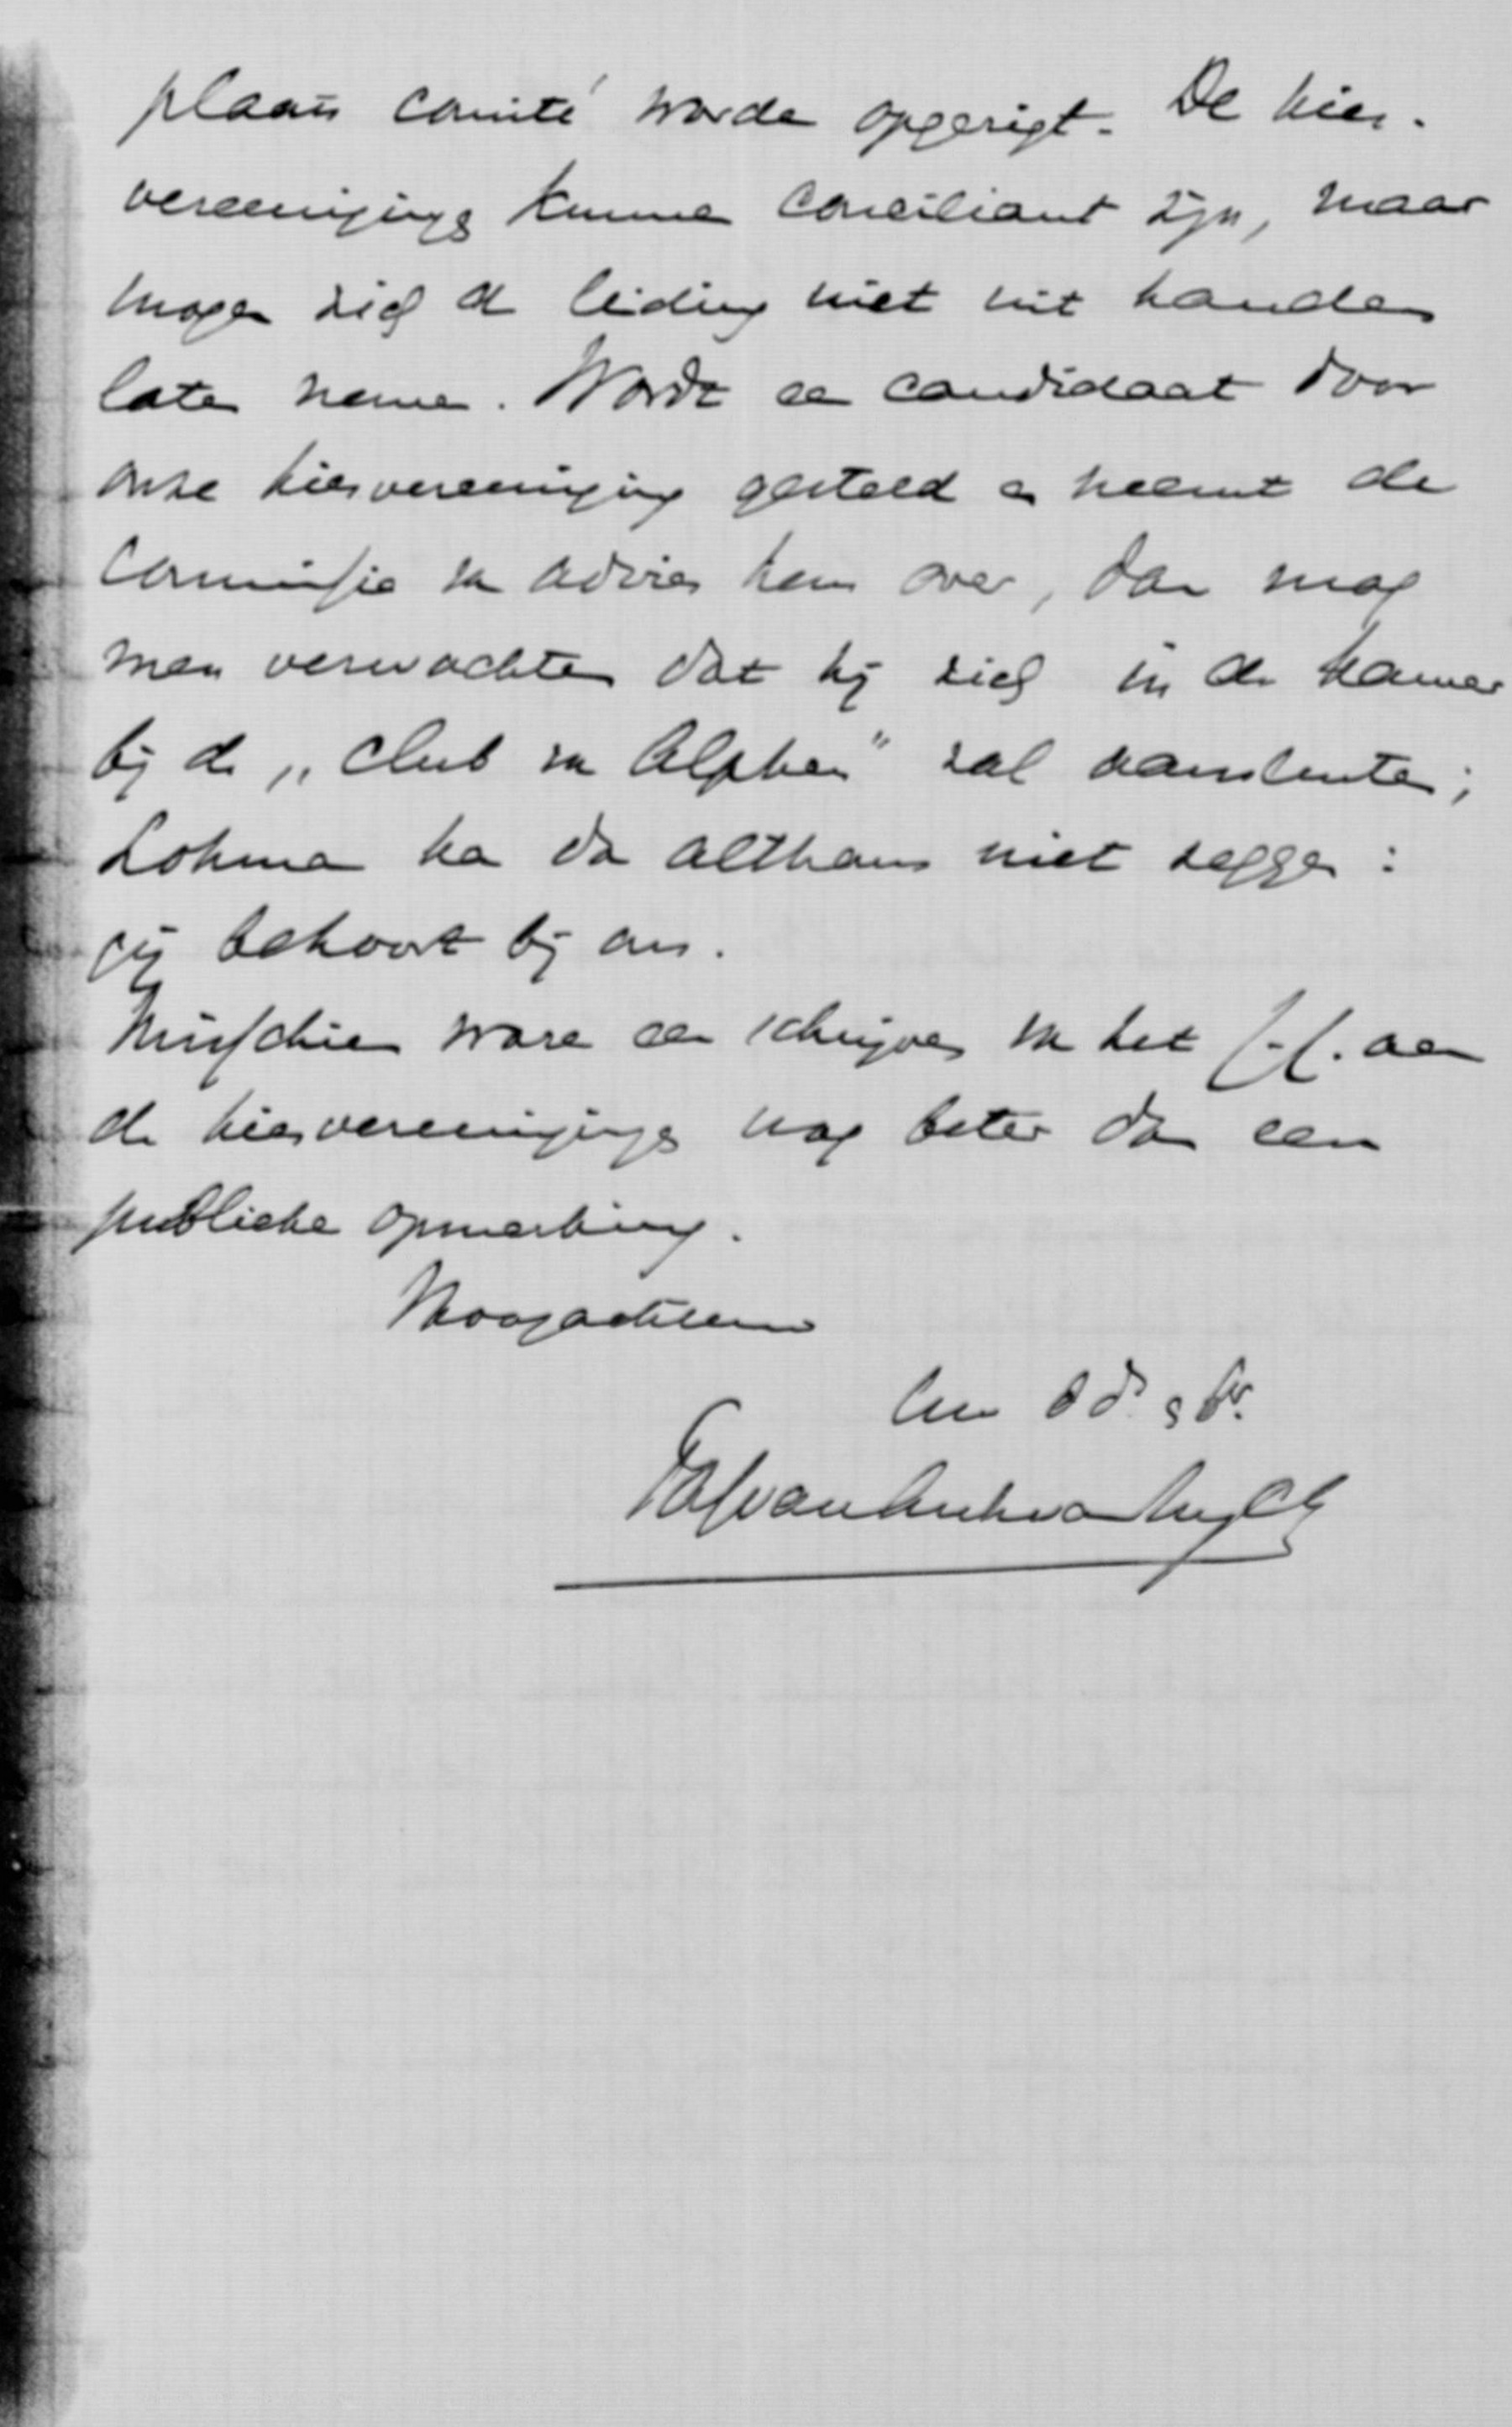 plaats comité worde opgerigt. De kies-
vereenigings kunne conciliant zijn, maar
moge zich de leiding niet uit handen
late neme. Wordt een candidaat door
onze kiesvereeniging gesteld en neemt de
Commissie van advies hem over, dan mag
men verwachten dat hij zich in de Kamer
bij de „Club van Alphen" zal aansluiten;
Lohman kan dan althans niet zeggen:
gij behoort bij ons.
Misschien ware een schrijven van het C.C. aan
de kiesvereenigings nog beter dan een
publieke opmerking.
Hoogachtend
Uw d d. en br.